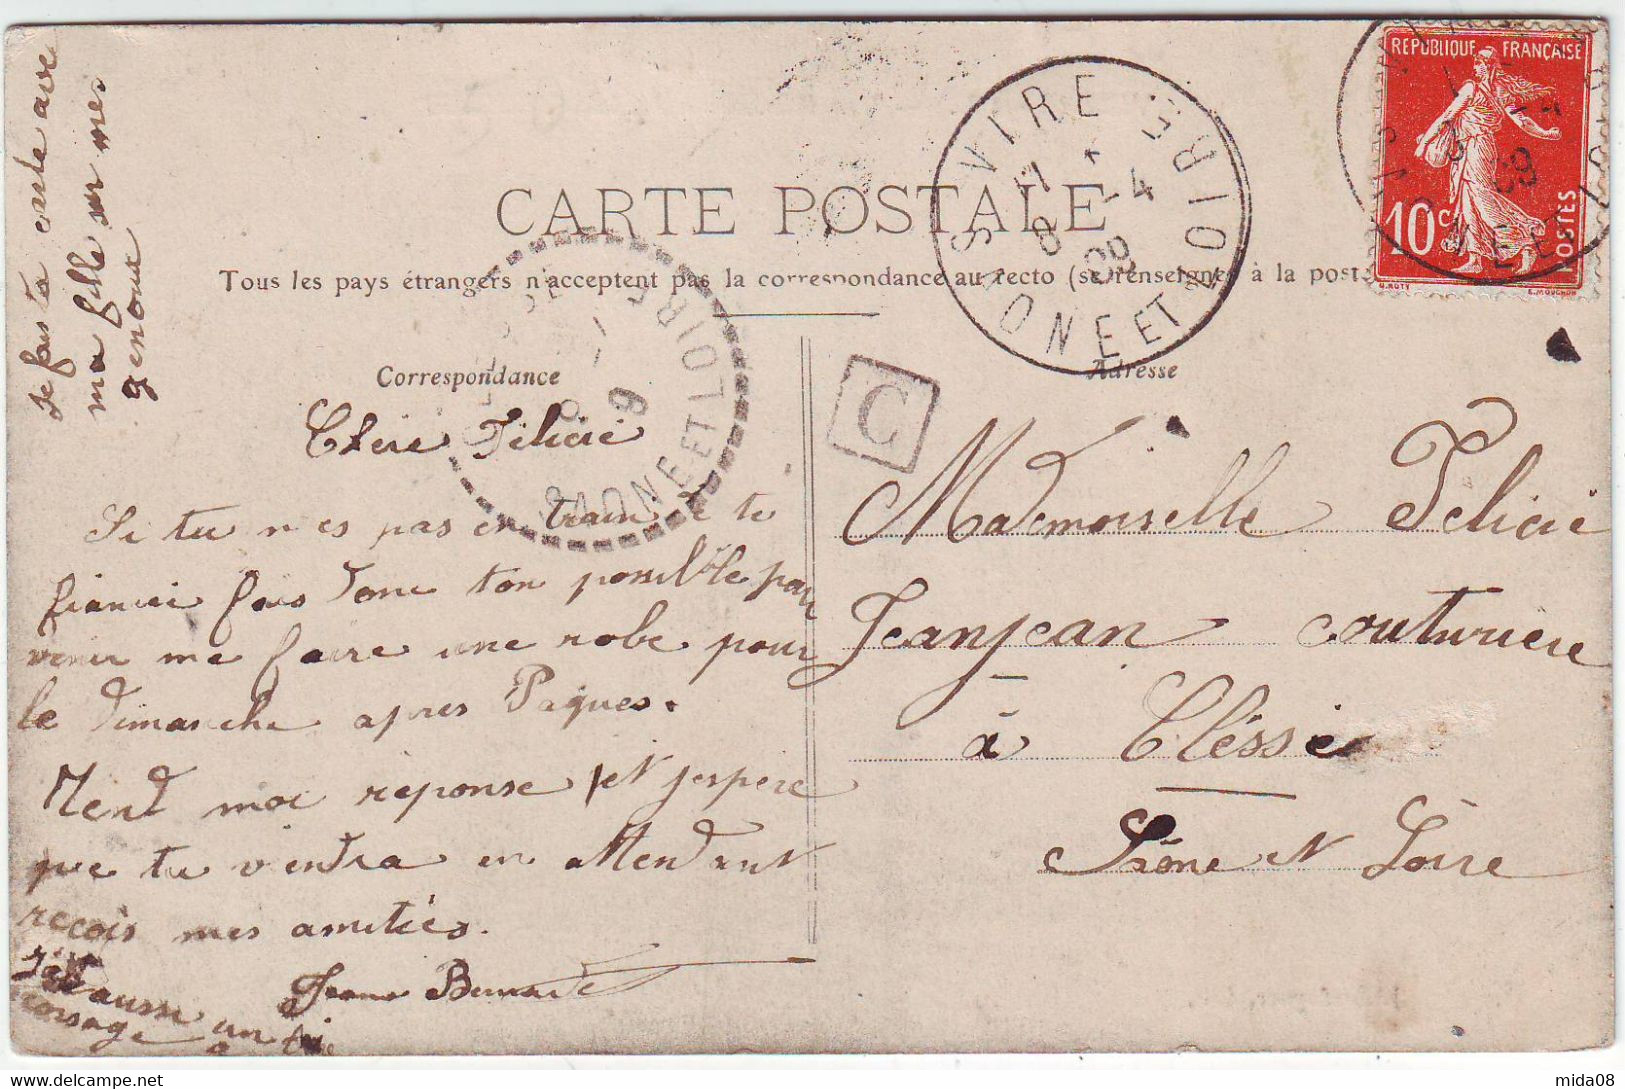 CARTE POSTALE
Tous les pays étrangers n'acceptent pas la correspondance au recto (se renseigner à la poste
Correspondance
Adresse
RÉPUBLIQUE FRANÇAISE
10c
POSTES
O. ROTY E. MOUCHON
VIRE
SAONE ET LOIRE
11
8 - 4
09
SAONE ET LOIRE
C
Je fais ta carte avec
ma fille sur mes
genoux
Chere Felicié
Si tu n es pas en train de te
fiancéé fais donc ton possible pour
venir me faire une robe pour
le Dimanche apres Paques.
Rend moi reponse et jespere
que tu viendra en attendant
recois mes amitiés.
Jeane
aussi un
corsage
Mademoiselle Felicié
Jeanjean couturiere
à Cléssé
Saône et Loire
mida08